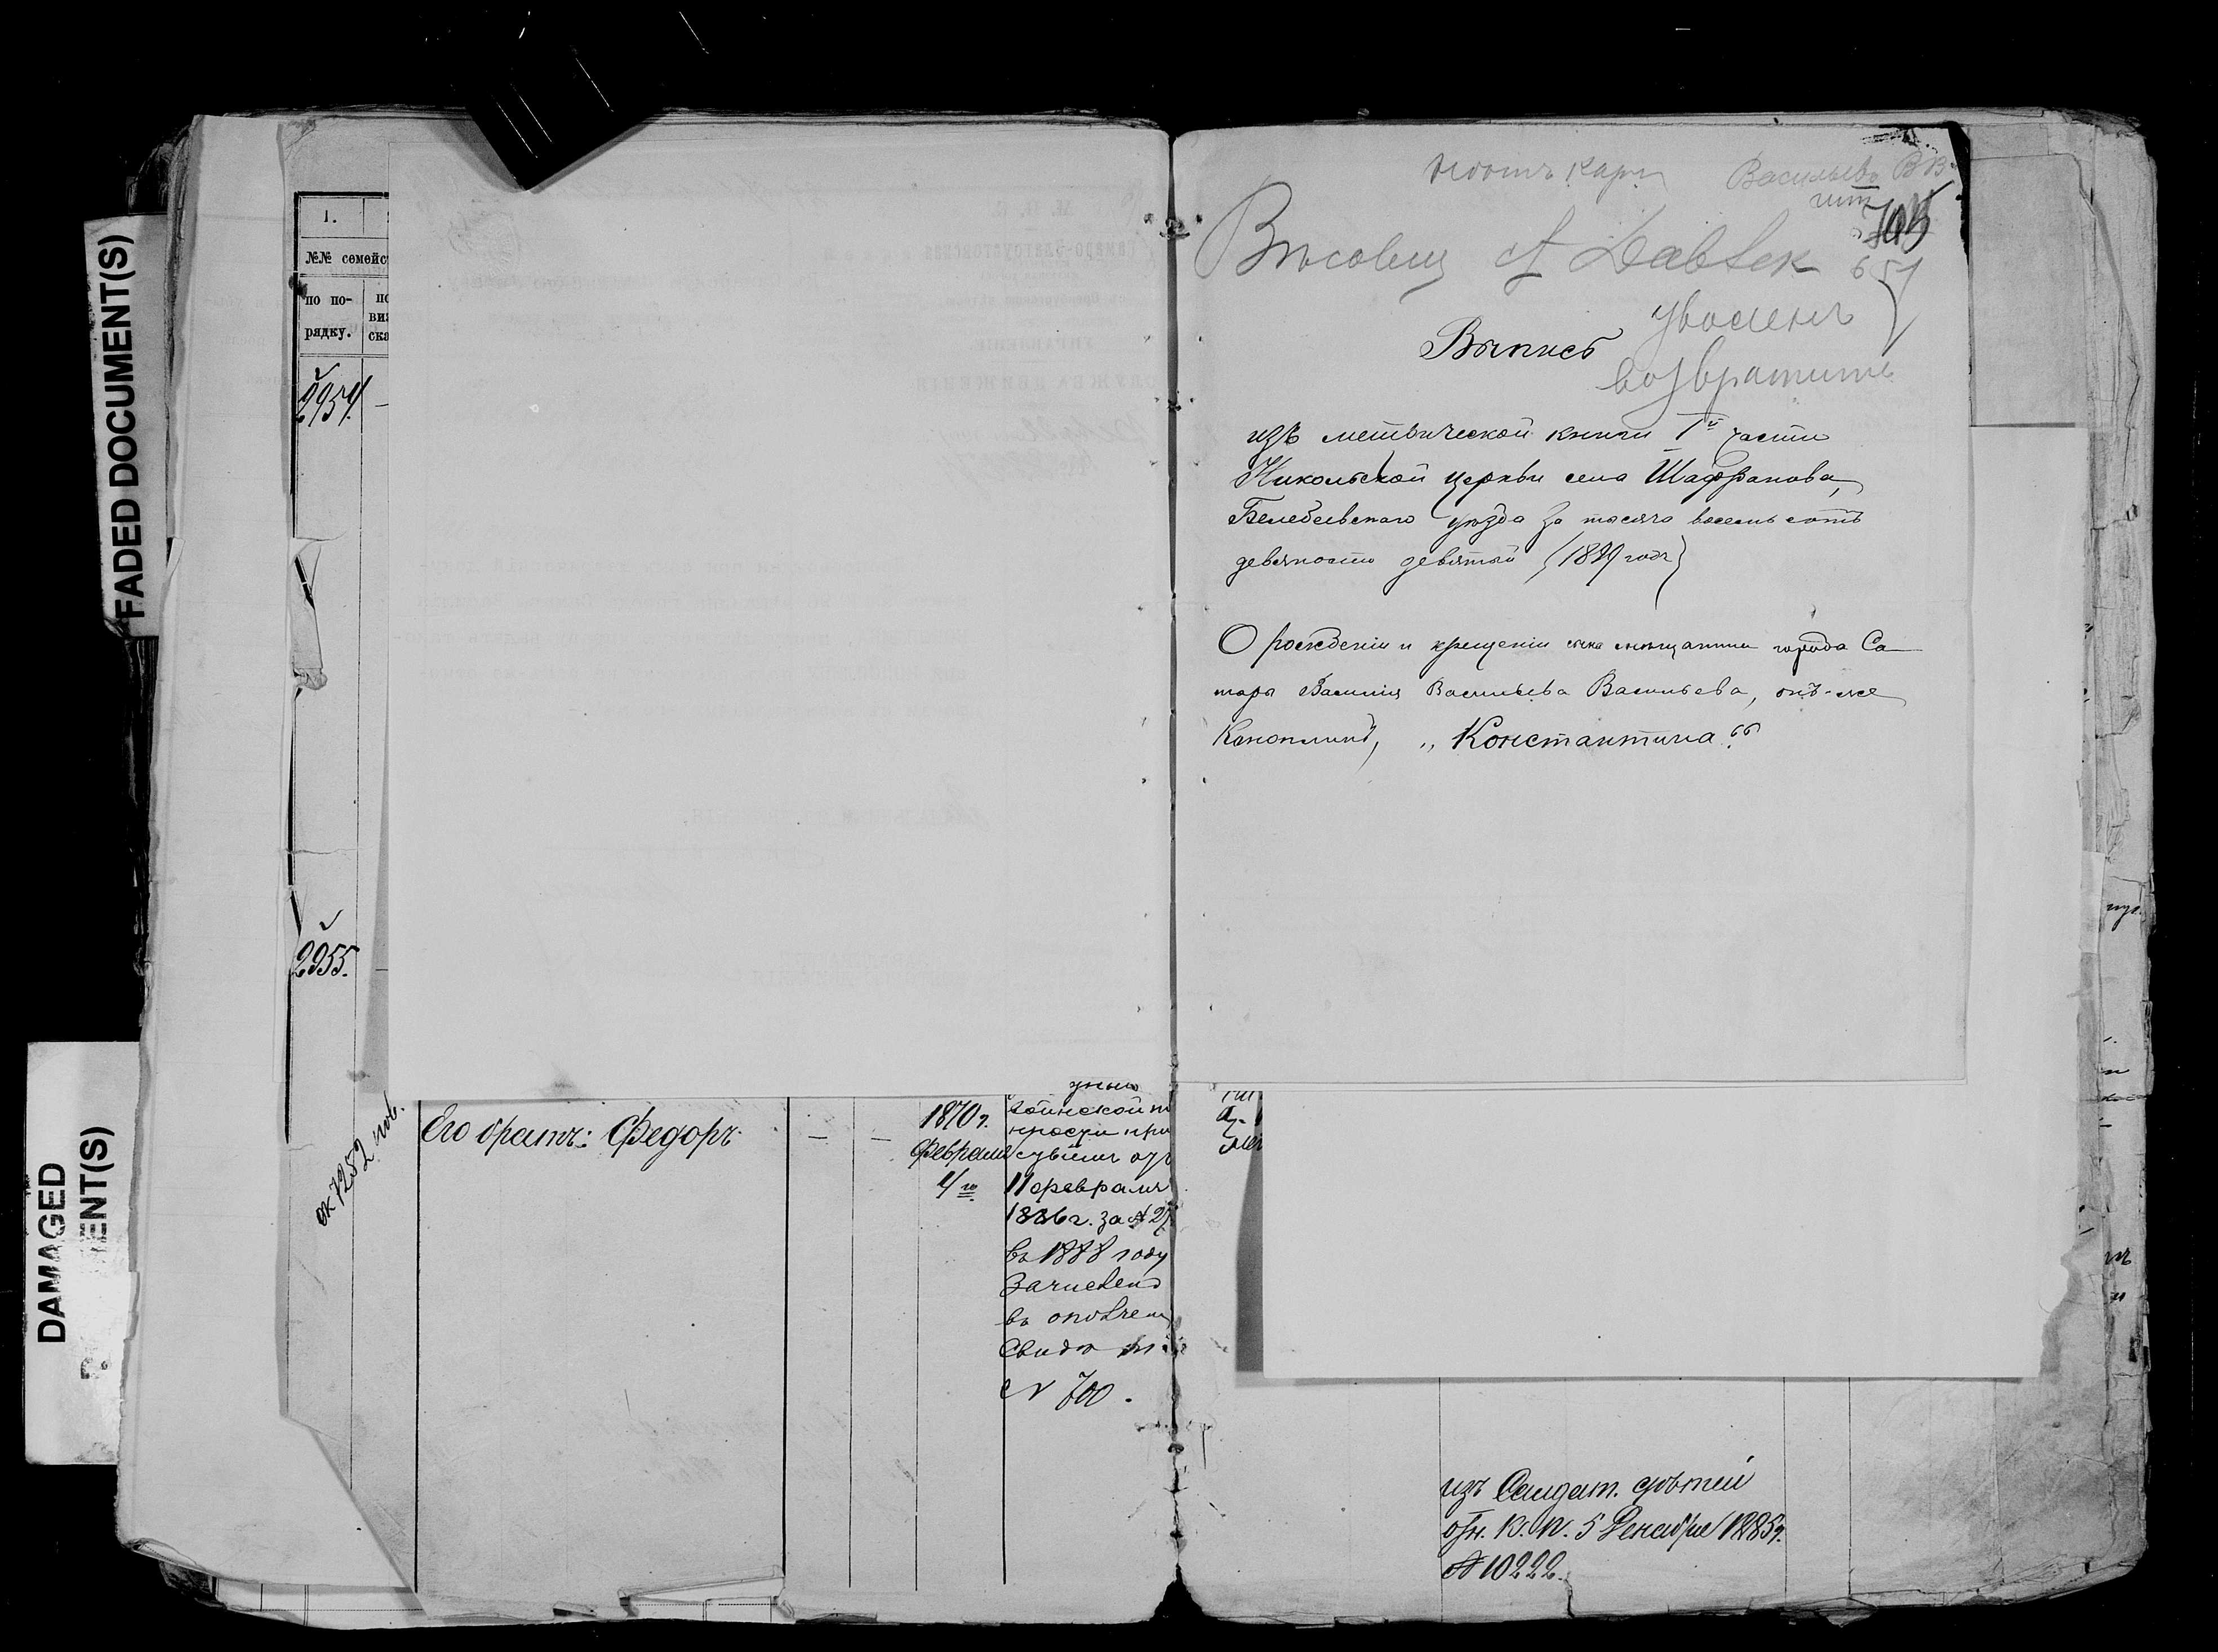 FADED DOCUMENT(S)
DAMAGED
ENT(S)
1.
№№ семейст
по по-
рядку.
по
виз
ска
2954.
2955.
1282
Его братъ: Федоръ
1870 г.
Февраля
4го
воинской
11 февраля
1886 г. за № 27
въ 1888 году
Зачисленъ
въ ополчен
Свидѣ
№ 700.
Васильевъ ВВ
705
651
уволенъ
Выпись
возвратить
изъ метрической книги Iй части
Никольской церкви села Шафранова,
Белебеевскаго уѣзда за тысяча восемьсотъ
девяносто девятый (1899 годъ)
О рожденіи и крещеніи сына мѣщанина города Са-
мары Василія Васильева Васильева, онъ-же
Коноплинъ, „Константина“.
изъ Солдат. дѣтей
К. П. 5 Декабря 1885 г.
№ 10222.